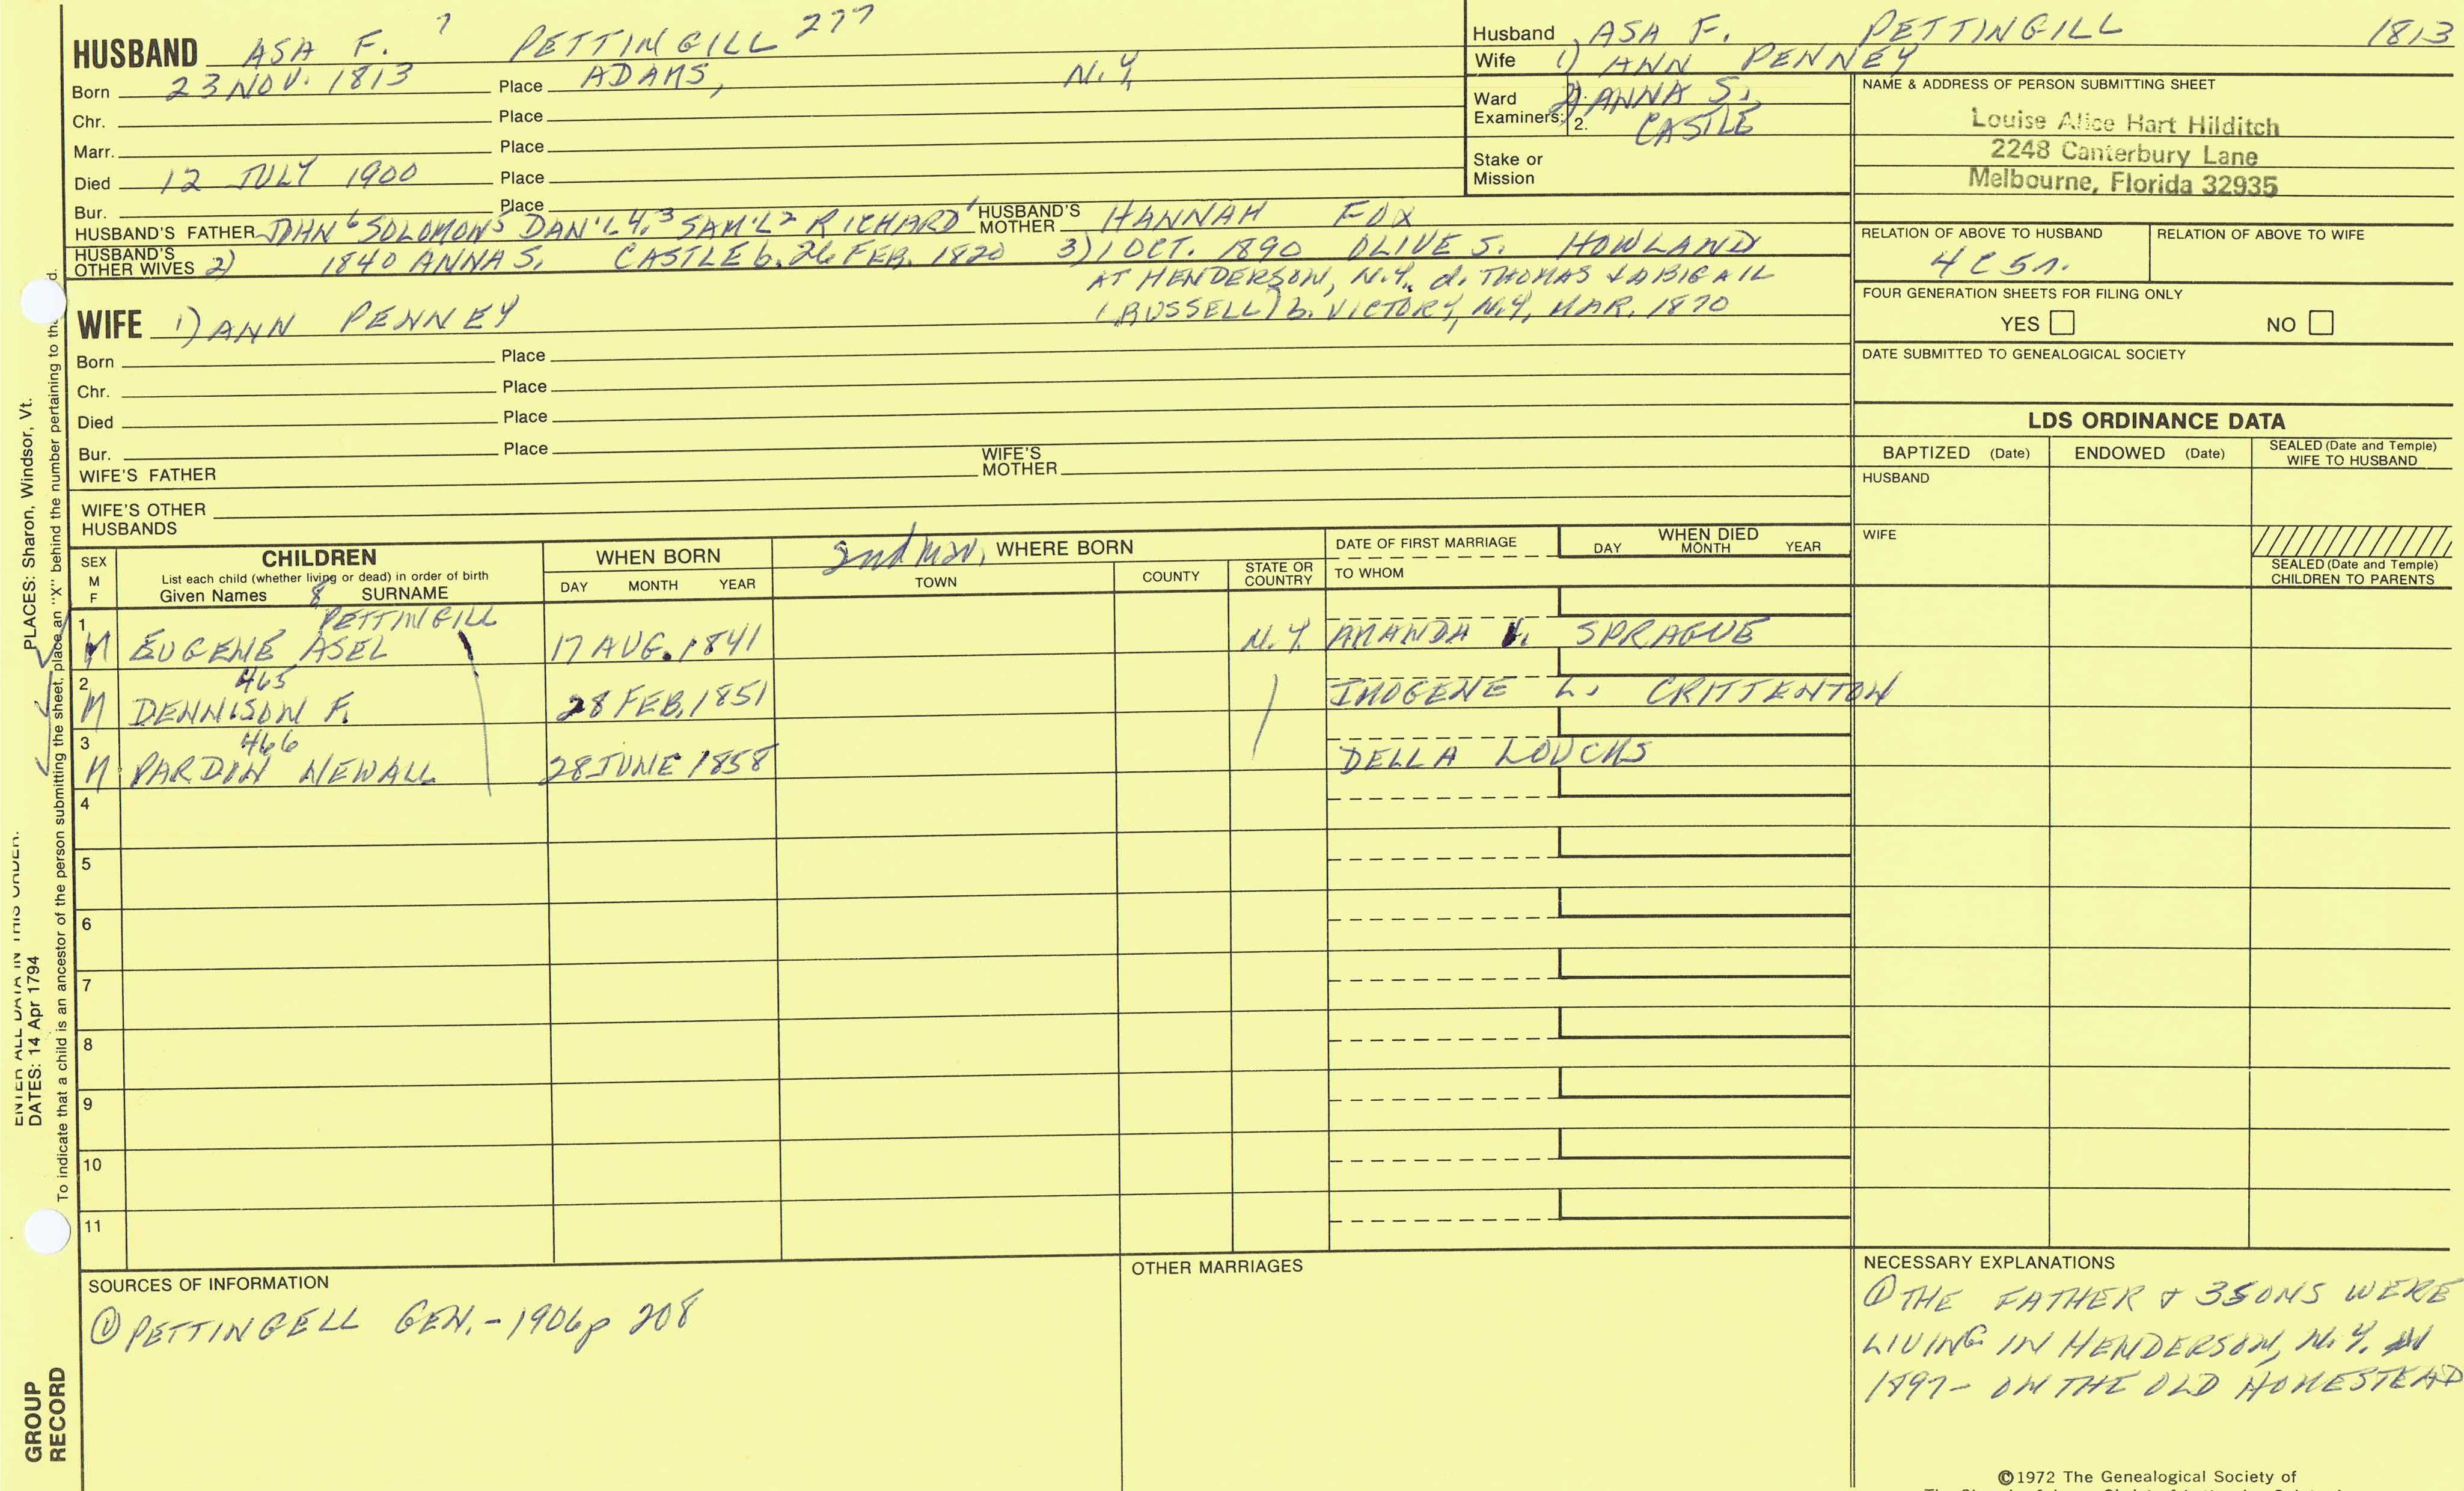 HUSBAND ASA F. 7 PETTINGILL 277
Born 23 NOV. 1813 Place ADAMS, N.Y.
Chr. Place
Marr. Place
Died 12 JULY 1900 Place
Bur. Place
HUSBAND'S FATHER JOHN 6 SOLOMON 5 DAN'L 4, 3 SAM'L 2 RICHARD 1 HUSBAND'S MOTHER HANNAH FOX
HUSBAND'S OTHER WIVES 2) 1840 ANNA S. CASTLE b. 26 FEB. 1820 3) 1 OCT. 1890 OLIVE S. HOWLAND
AT HENDERSON, N.Y. d. THOMAS & ABIGAIL
(RUSSELL) b. VICTORY, N.Y, MAR. 1870
WIFE 1) ANN PENNEY
Born Place
Chr. Place
Died Place
Bur. Place
WIFE'S FATHER WIFE'S MOTHER
WIFE'S OTHER HUSBANDS
Husband ASA F. PETTINGILL 1813
Wife 1) ANN PENNEY
Ward Examiners: 2) ANNA S.
2. CASTLE
Stake or Mission
NAME & ADDRESS OF PERSON SUBMITTING SHEET
Louise Alice Hart Hilditch
2248 Canterbury Lane
Melbourne, Florida 32935
RELATION OF ABOVE TO HUSBAND RELATION OF ABOVE TO WIFE
4 C 5 r.
FOUR GENERATION SHEETS FOR FILING ONLY
YES NO
DATE SUBMITTED TO GENEALOGICAL SOCIETY
LDS ORDINANCE DATA
BAPTIZED (Date) ENDOWED (Date) SEALED (Date and Temple) WIFE TO HUSBAND
HUSBAND
WIFE
SEALED (Date and Temple) CHILDREN TO PARENTS
SEX M F CHILDREN WHEN BORN 2nd mar. WHERE BORN DATE OF FIRST MARRIAGE WHEN DIED
List each child (whether living or dead) in order of birth
Given Names 8 SURNAME DAY MONTH YEAR TOWN COUNTY STATE OR COUNTRY TO WHOM DAY MONTH YEAR
PETTINGILL
1 M EUGENE ASEL 17 AUG. 1841 N.Y. AMANDA SPRAGUE
465
2 M DENNISON F. 28 FEB. 1851 IMOGENE L. CRITTENTON
466
3 M PARDIN NEWALL 28 JUNE 1858 DELLA LOUCKS
4
5
6
7
8
9
10
11
SOURCES OF INFORMATION
① PETTINGELL GEN. - 1906 p 208
OTHER MARRIAGES
NECESSARY EXPLANATIONS
① THE FATHER & 3 SONS WERE
LIVING IN HENDERSON, N.Y. IN
1897 - ON THE OLD HOMESTEAD
©1972 The Genealogical Society of
PLACES: Sharon, Windsor, Vt.
ENTER ALL DATA IN THIS ORDER:
DATES: 14 Apr 1794
To indicate that a child is an ancestor of the person submitting the sheet, place an "X" behind the number pertaining to
GROUP RECORD